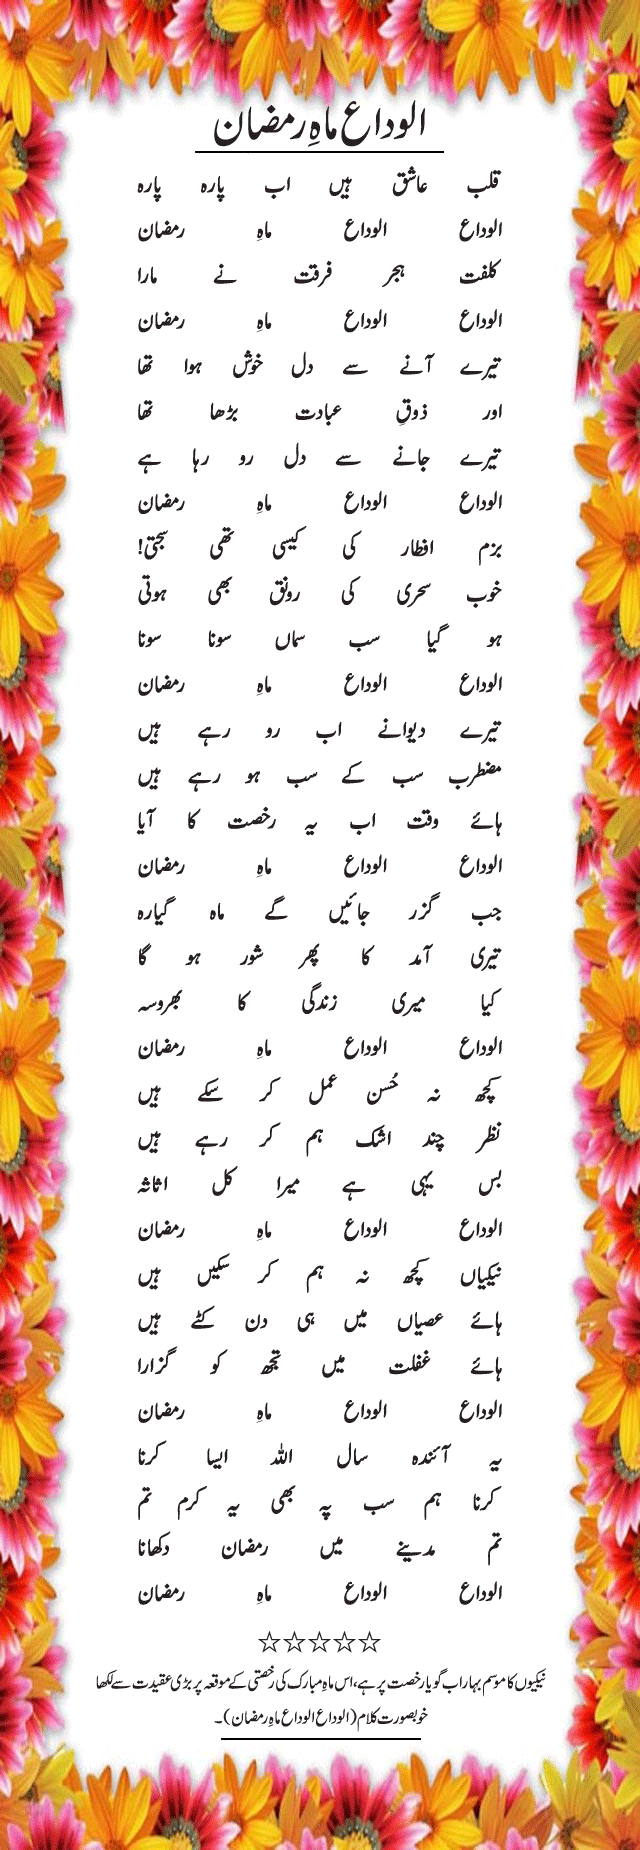 الوداع ماہِ رمضان
قلب عاشق ہیں اب پارہ پارہ
الوداع الوداع ماہِ رمضان
کلفت ہجر فرقت نے مارا
الوداع الوداع ماہِ رمضان
تیرے آنے سے دل خوش ہوا تھا
اور ذوقِ عبادت بڑھا تھا
تیرے جانے سے دل رو رہا ہے
الوداع الوداع ماہِ رمضان
بزم افطار کی کیسی تھی سجتی!
خوب سحری کی رونق بھی ہوتی
ہو گیا سب سماں سونا سونا
الوداع الوداع ماہِ رمضان
تیرے دیوانے اب رو رہے ہیں
مضطرب سب کے سب ہو رہے ہیں
ہائے وقت اب یہ رخصت کا آیا
الوداع الوداع ماہِ رمضان
جب گزر جائیں گے ماہ گیارہ
تیری آمد کا پھر شور ہو گا
کیا میری زندگی کا بھروسہ
الوداع الوداع ماہِ رمضان
کچھ نہ حُسن عمل کر سکے ہیں
نظر چند اشک ہم کر رہے ہیں
بس یہی ہے میرا کل اثاثہ
الوداع الوداع ماہِ رمضان
نیکیاں کچھ نہ ہم کر سکیں ہیں
ہائے عصیاں میں ہی دن کٹے ہیں
ہائے غفلت میں تجھ کو گزارا
الوداع الوداع ماہِ رمضان
یہ آئندہ سال اللہ ایسا کرنا
کرنا ہم سب پہ بھی یہ کرم تم
تم مدینے میں رمضان دکھانا
الوداع الوداع ماہِ رمضان
☆☆☆☆☆
نیکیوں کا موسم بہار اب گویا رخصت پر ہے، اس ماہِ مبارک کی رخصتی کے موقعہ پر بڑی عقیدت سے لکھا
خوبصورت کلام (الوداع الوداع ماہِ رمضان)۔